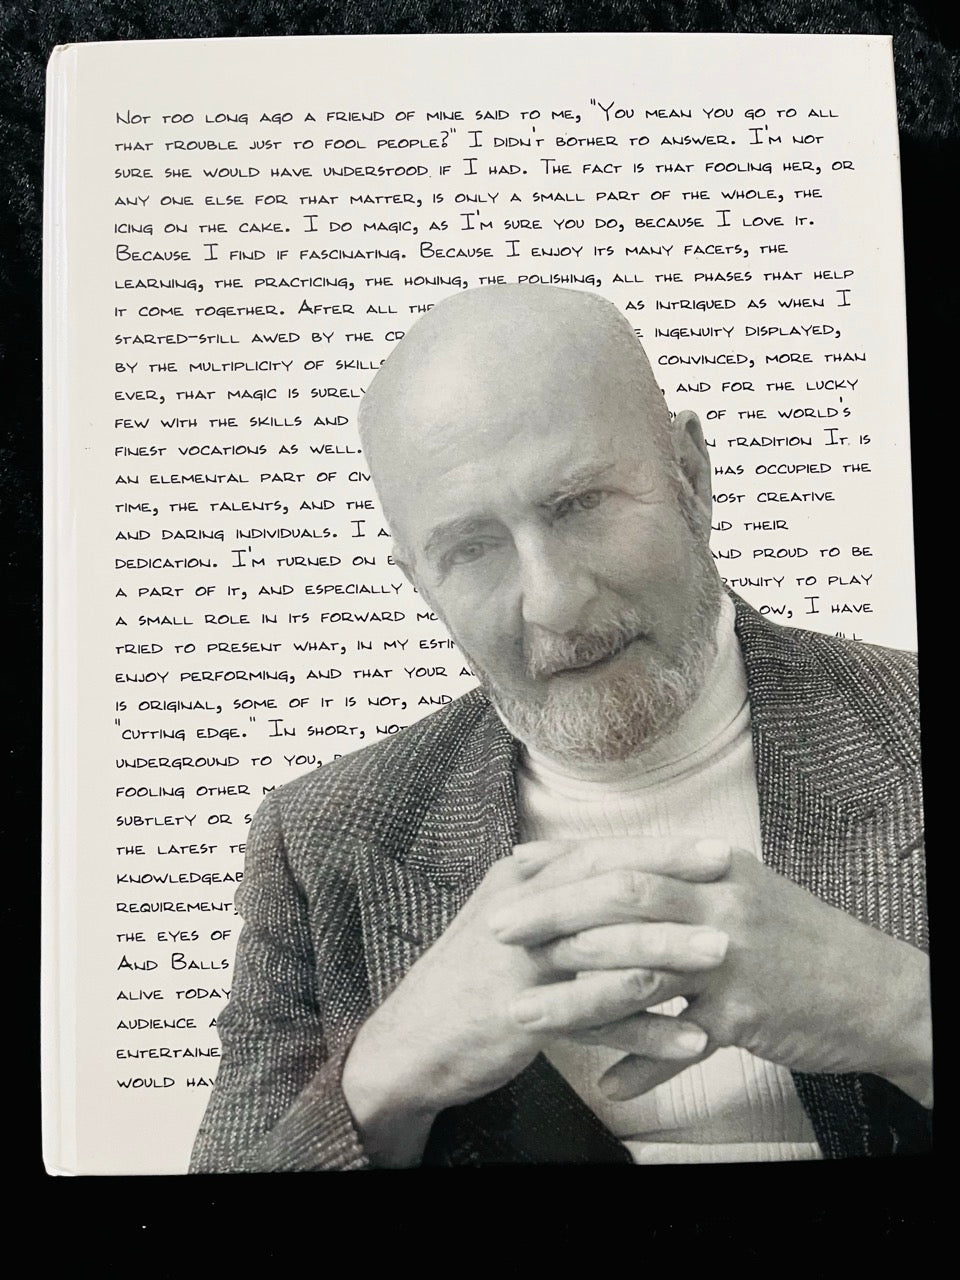 Not too long ago a friend of mine said to me, "You mean you go to all
that trouble just to fool people?" I didn't bother to answer. I'm not
sure she would have understood if I had. The fact is that fooling her, or
any one else for that matter, is only a small part of the whole, the
icing on the cake. I do magic, as I'm sure you do, because I love it.
Because I find if fascinating. Because I enjoy its many facets, the
learning, the practicing, the honing, the polishing, all the phases that help
it come together. After all the as intrigued as when I
started-still awed by the ingenuity displayed,
by the multiplicity of skills convinced, more than
ever, that magic is surely and for the lucky
few with the skills and of the world's
finest vocations as well. tradition It is
an elemental part of has occupied the
time, the talents, and the most creative
and daring individuals. I and their
dedication. I'm turned on and proud to be
a part of it, and especially to play
a small role in its forward now, I have
tried to present what, in my
enjoy performing, and that your
is original, some of it is not, and
"cutting edge." In short, not
underground to you,
fooling other
subtlety or
the latest
requirement,
the eyes of
And Balls
alive today
audience
would